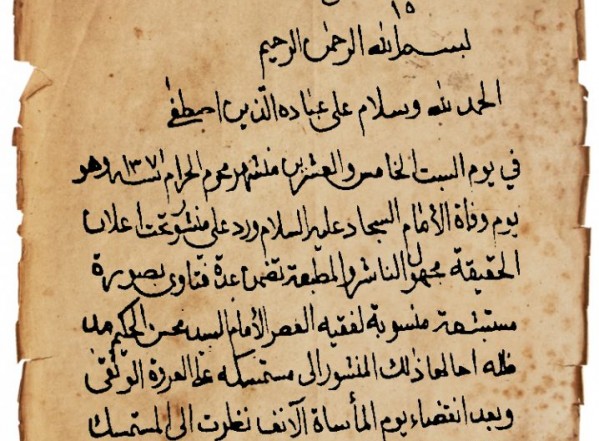 ١٥
بسم الله الرحمن الرحيم
الحمد لله وسلام على عباده الذين اصطفى
في يوم السبت الخامس والعشرين من شهر محرم الحرام سنة ١٣٧١ وهو
يوم وفاة الأمام السجاد عليه السلام ورد علي منشور تحت اعلان
الحقيقة مجهول الناشر والمطبعة تضمن عدة فتاوى بصورة
مستبشعة منسوبة لفقيه العصر الأمام السيد محسن الحكيم مد
ظله احالها ذلك المنشور الى مستمسكه على العروة الوثقى
وبعد انقضاء يوم المأساة الآنف نظرت الى المستمسك